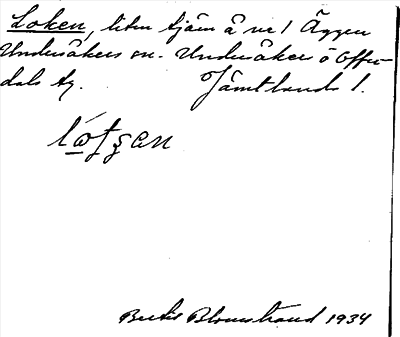 Loken, liten tjärn å ne / Äggen
Undersåkers sn. Undersåkers o Offer-
dals tg. Jämtlands l.
Bertil Blomstrand 1934